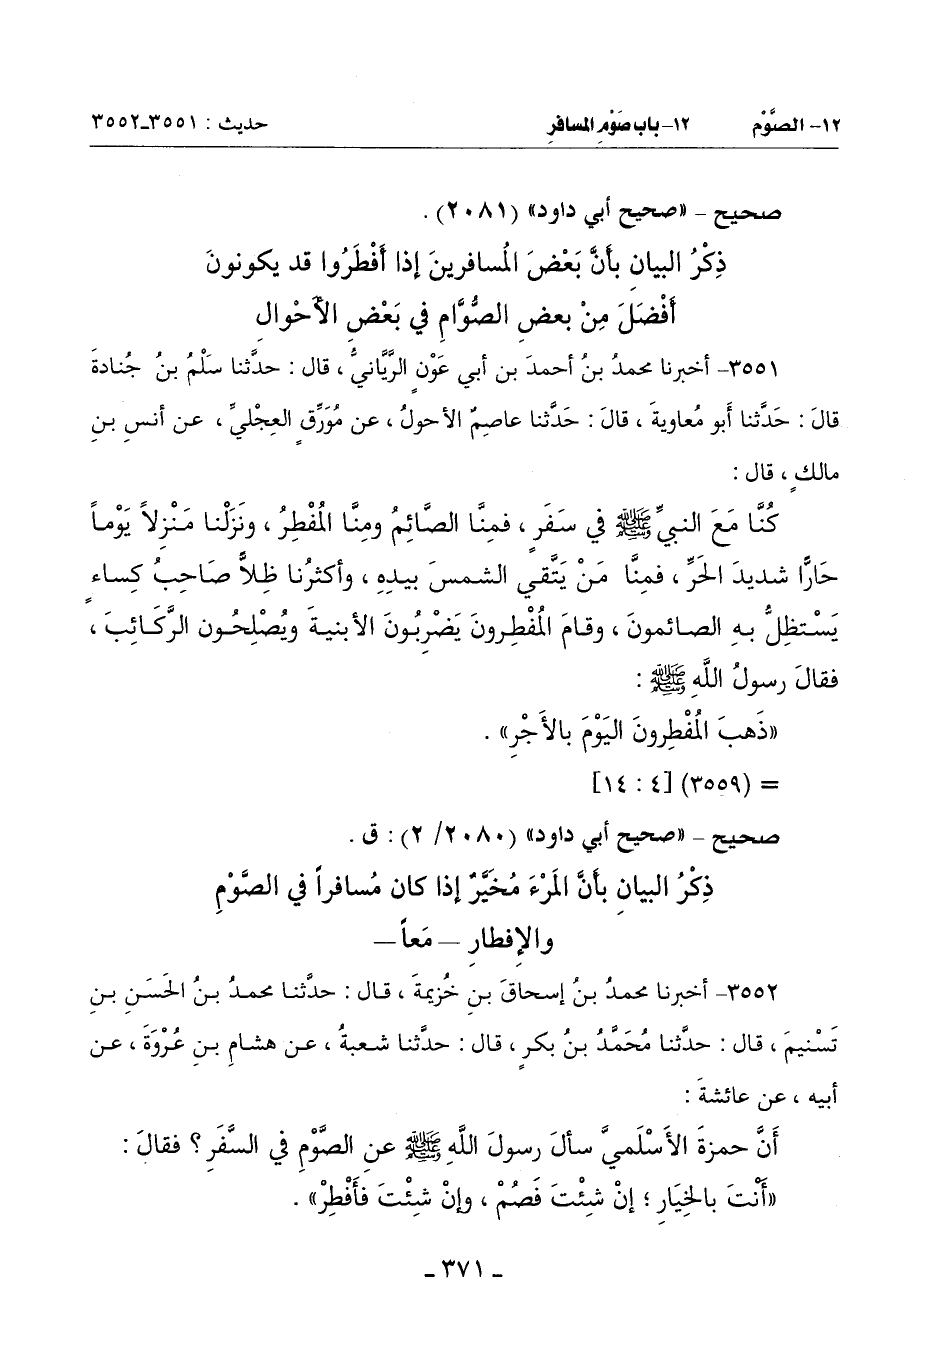 ١٢- الصَّوْم ١٢- باب صَوْمِ المسافرِ حديث : ٣٥٥١-٣٥٥٢
صحيح - «صحيح أبي داود» (٢٠٨١) .
ذِكْرُ البيانِ بأنَّ بَعْضَ المُسافرينَ إذا أَفْطَرُوا قد يكونونَ
أَفْضَلَ مِنْ بعضِ الصُّوَّامِ في بَعْضِ الأَحْوالِ
٣٥٥١- أخبرنا محمدُ بنُ أحمدَ بن أبي عَوْنٍ الرَّيَّانيُّ ، قال : حدَّثنا سَلْمُ بنُ جُنادةَ
قالَ : حَدَّثنا أبو مُعاويةَ ، قالَ : حَدَّثنا عاصِمٌ الأحولُ ، عن مُوَرِّقٍ العِجْليِّ ، عن أنسِ بنِ
مالكٍ ، قال :
كُنَّا مَعَ النبيِّ ﷺ في سَفَرٍ ، فمِنَّا الصَّائِمُ ومِنَّا المُفْطِرُ ، ونَزَلْنا مَنْزِلاً يَوْماً
حَارّاً شديدَ الحَرِّ ، فمِنَّا مَنْ يَتَّقي الشمسَ بيدِهِ ، وأكثرُنا ظِلاًّ صَاحِبُ كِساءٍ
يَسْتظِلُّ بهِ الصائمونَ ، وقامَ المُفْطِرونَ يَضْرِبُونَ الأبنيةَ ويُصْلِحُون الرَّكَائِبَ ،
فقالَ رسولُ اللَّهِ ﷺ :
«ذَهبَ المُفْطِرونَ اليَوْمَ بالأَجْرِ» .
= (٣٥٥٩) [٤ : ١٤]
صحيح - «صحيح أبي داود» (٢٠٨٠/ ٢) : ق .
ذِكْرُ البيانِ بأنَّ المَرْءَ مُخَيَّرٌ إذا كان مُسافراً في الصَّوْمِ
والإِفطارِ - مَعاً -
٣٥٥٢- أخبرنا محمدُ بنُ إسحاقَ بنِ خُزيمةَ ، قال : حدَّثنا محمدُ بنُ الحَسَنِ بنِ
تَسْنيمَ ، قال : حدَّثنا مُحَمَّدُ بنُ بكرٍ ، قال : حدَّثنا شعبةُ ، عن هشامِ بنِ عُرْوَةَ ، عن
أبيه ، عن عائشةَ :
أنَّ حمزةَ الأَسْلَميَّ سألَ رسولَ اللَّهِ ﷺ عنِ الصَّوْمِ في السَّفَرِ ؟ فقالَ :
«أَنْتَ بالخِيَارِ ؛ إنْ شئْتَ فَصُمْ ، وإنْ شئْتَ فأَفْطِرْ» .
- ٣٧١ -